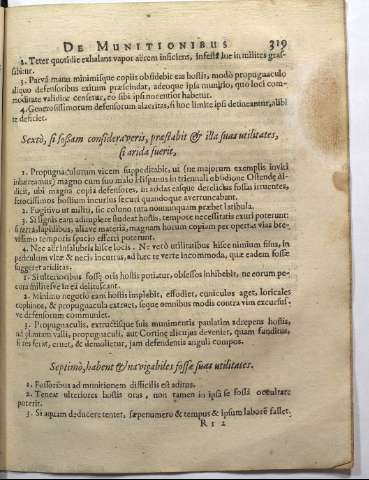 DE MUNITIONIBUS 319
2. Teter quotidie exhalans vapor aërem inficiens, infestâ lue in milites gras-
sabitur.
3. Parvâ manu minimisque copiis obsidebit eas hostis, modò propugnaculo
aliquo defensoribus exitum præscindat, adeoque ipsa munitio, quo loci com-
moditate validior censetur, eo sibi ipsi nocentior habetur.
4. Generosissimorum defensorum alacritas, si hoc limite ipsi detineantur, alibi
te deficiet.
Sextò, si fossam consideraveris, præstabit & illa suas utilitates,
si arida fuerit,
1. Propugnaculorum vicem suppeditabit, ut (ne majorum exemplis invicti
inhæreamus) magno cum suo malo Hispanus in triennali obsidione Ostendę di-
dicit, ubi magna copia defensores, in aridas easque derelictas fossas irruentes,
ferocissimos hostium incursus securi quandoque averruncabant.
2. Fugitivo ut multis, sic colono tuta nonnunquam præbet latibula.
3. Si ignis eam adimplere studeat hostis, tempore necessitatis exuri poterunt:
si terra lapidibus, aliave materia, magnam horum copiam per opertas vias bre-
vissimo temporis spacio effecti poterunt.
4. Nec aër insalubris hisce locis. Ne verò utilitatibus hisce nimium fisus, in
periculum vitæ & necis incurras, ad hæc te verte incommoda, quæ eadem fossæ
suggeret ariditas.
1. Si ulterioribus fossę oris hostis potiatur, obsessos inhibebit, ne eorum pe-
cora militesve in eâ delitescant.
2. Minimo negotio eam hostis implebit, effodiet, cuniculos aget, loricales
copinos, & propugnacula extruet, seque omnibus modis contra vim excursus-
ve defensorum communiet.
3. Propugnaculis, extructisque suis munimentis paulatim adrepens hostis,
ad plantam valli, propugnaculi, aut Cortinę alicujus deveniet, quam funditus,
si res ferat, eruet, & demolietur, jam defendentis anguli compos.
Septimò, habent & navigabiles fossæ suas utilitates.
1. Fossoribus ad munitionem difficilis est aditus.
2. Teneat ulteriores hostis oras, non tamen in ipsâ se fossâ occultare
poterit.
3. Si aquam deducere tentet, sæpenumero & tempus & ipsum laborẽ fallet.
Rr 2